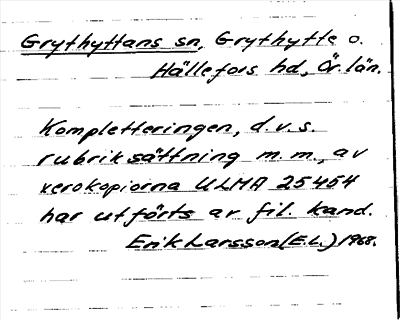 Grythyttans sn, Grythytte o.
Hällefors hd, Ör. län.
Kompletteringen, d.v.s.
rubriksättning m.m., av
xerokopiorna ULMA 25454
har utförts av fil. kand.
Erik Larsson (E.L.) 1968.